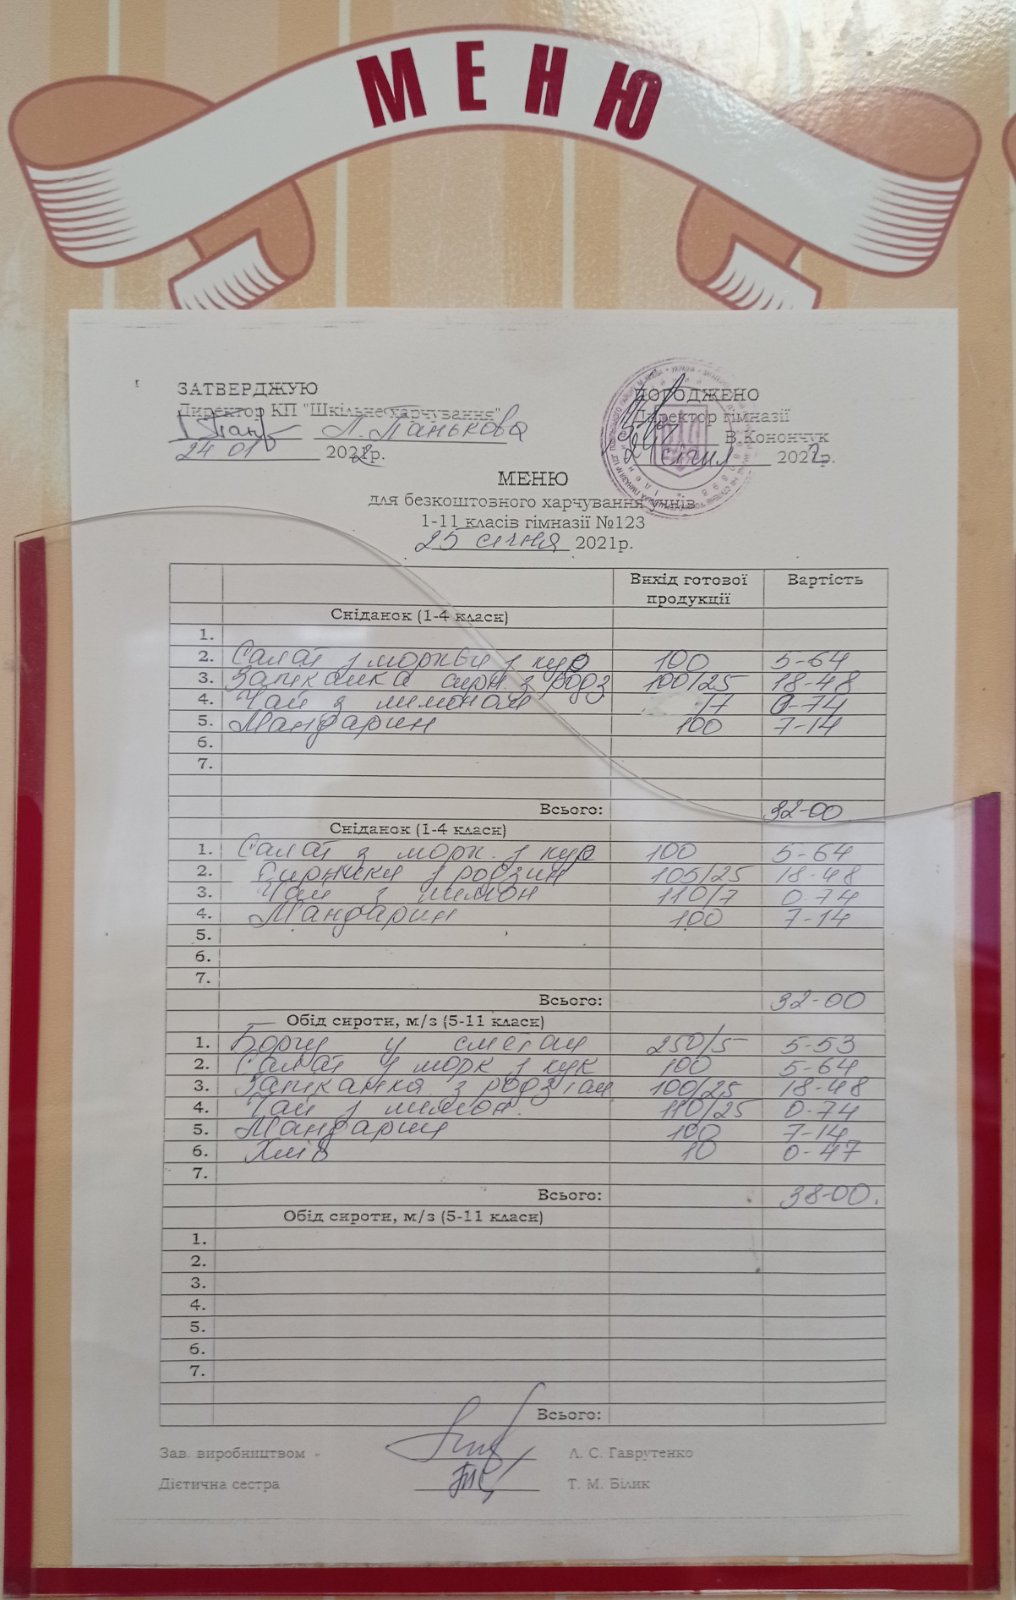 МЕНЮ
ЗАТВЕРДЖУЮ
Директор КП "Шкільне харчування"
Л. Панькова
24 01 2022р.
ПОГОДЖЕНО
Директор гімназії
В.Конончук
24 січня 2022р.
МЕНЮ
для безкоштовного харчування учнів
1-11 класів гімназії №123
25 січня 2021р.
Вихід готової продукції Вартість
Сніданок (1-4 класи)
1.
2. Салат з моркви з кур 100 5-64
3. Запіканка сирн. з родз 100/25 18-48
4. Чай з лимоном /7 0-74
5. Мандарин 100 7-14
6.
7.
Всього: 32-00
Сніданок (1-4 класи)
1. Салат з морк. з кур 100 5-64
2. Сирники з родзин 105/25 18-48
3. Чай з лимон 110/7 0-74
4. Мандарин 100 7-14
5.
6.
7.
Всього: 32-00
Обід сироти, м/з (5-11 класи)
1. Борщ у сметан 250/5 5-53
2. Салат з морк з кук 100 5-64
3. Запіканка з родзтан 100/25 18-48
4. Чай з лимон. 110/25 0-74
5. Мандарин 100 7-14
6. Хліб 10 0-47
7.
Всього: 38-00.
Обід сироти, м/з (5-11 класи)
1.
2.
3.
4.
5.
6.
7.
Всього:
Зав. виробництвом - Л. С. Гаврутенко
Дієтична сестра Т. М. Білик